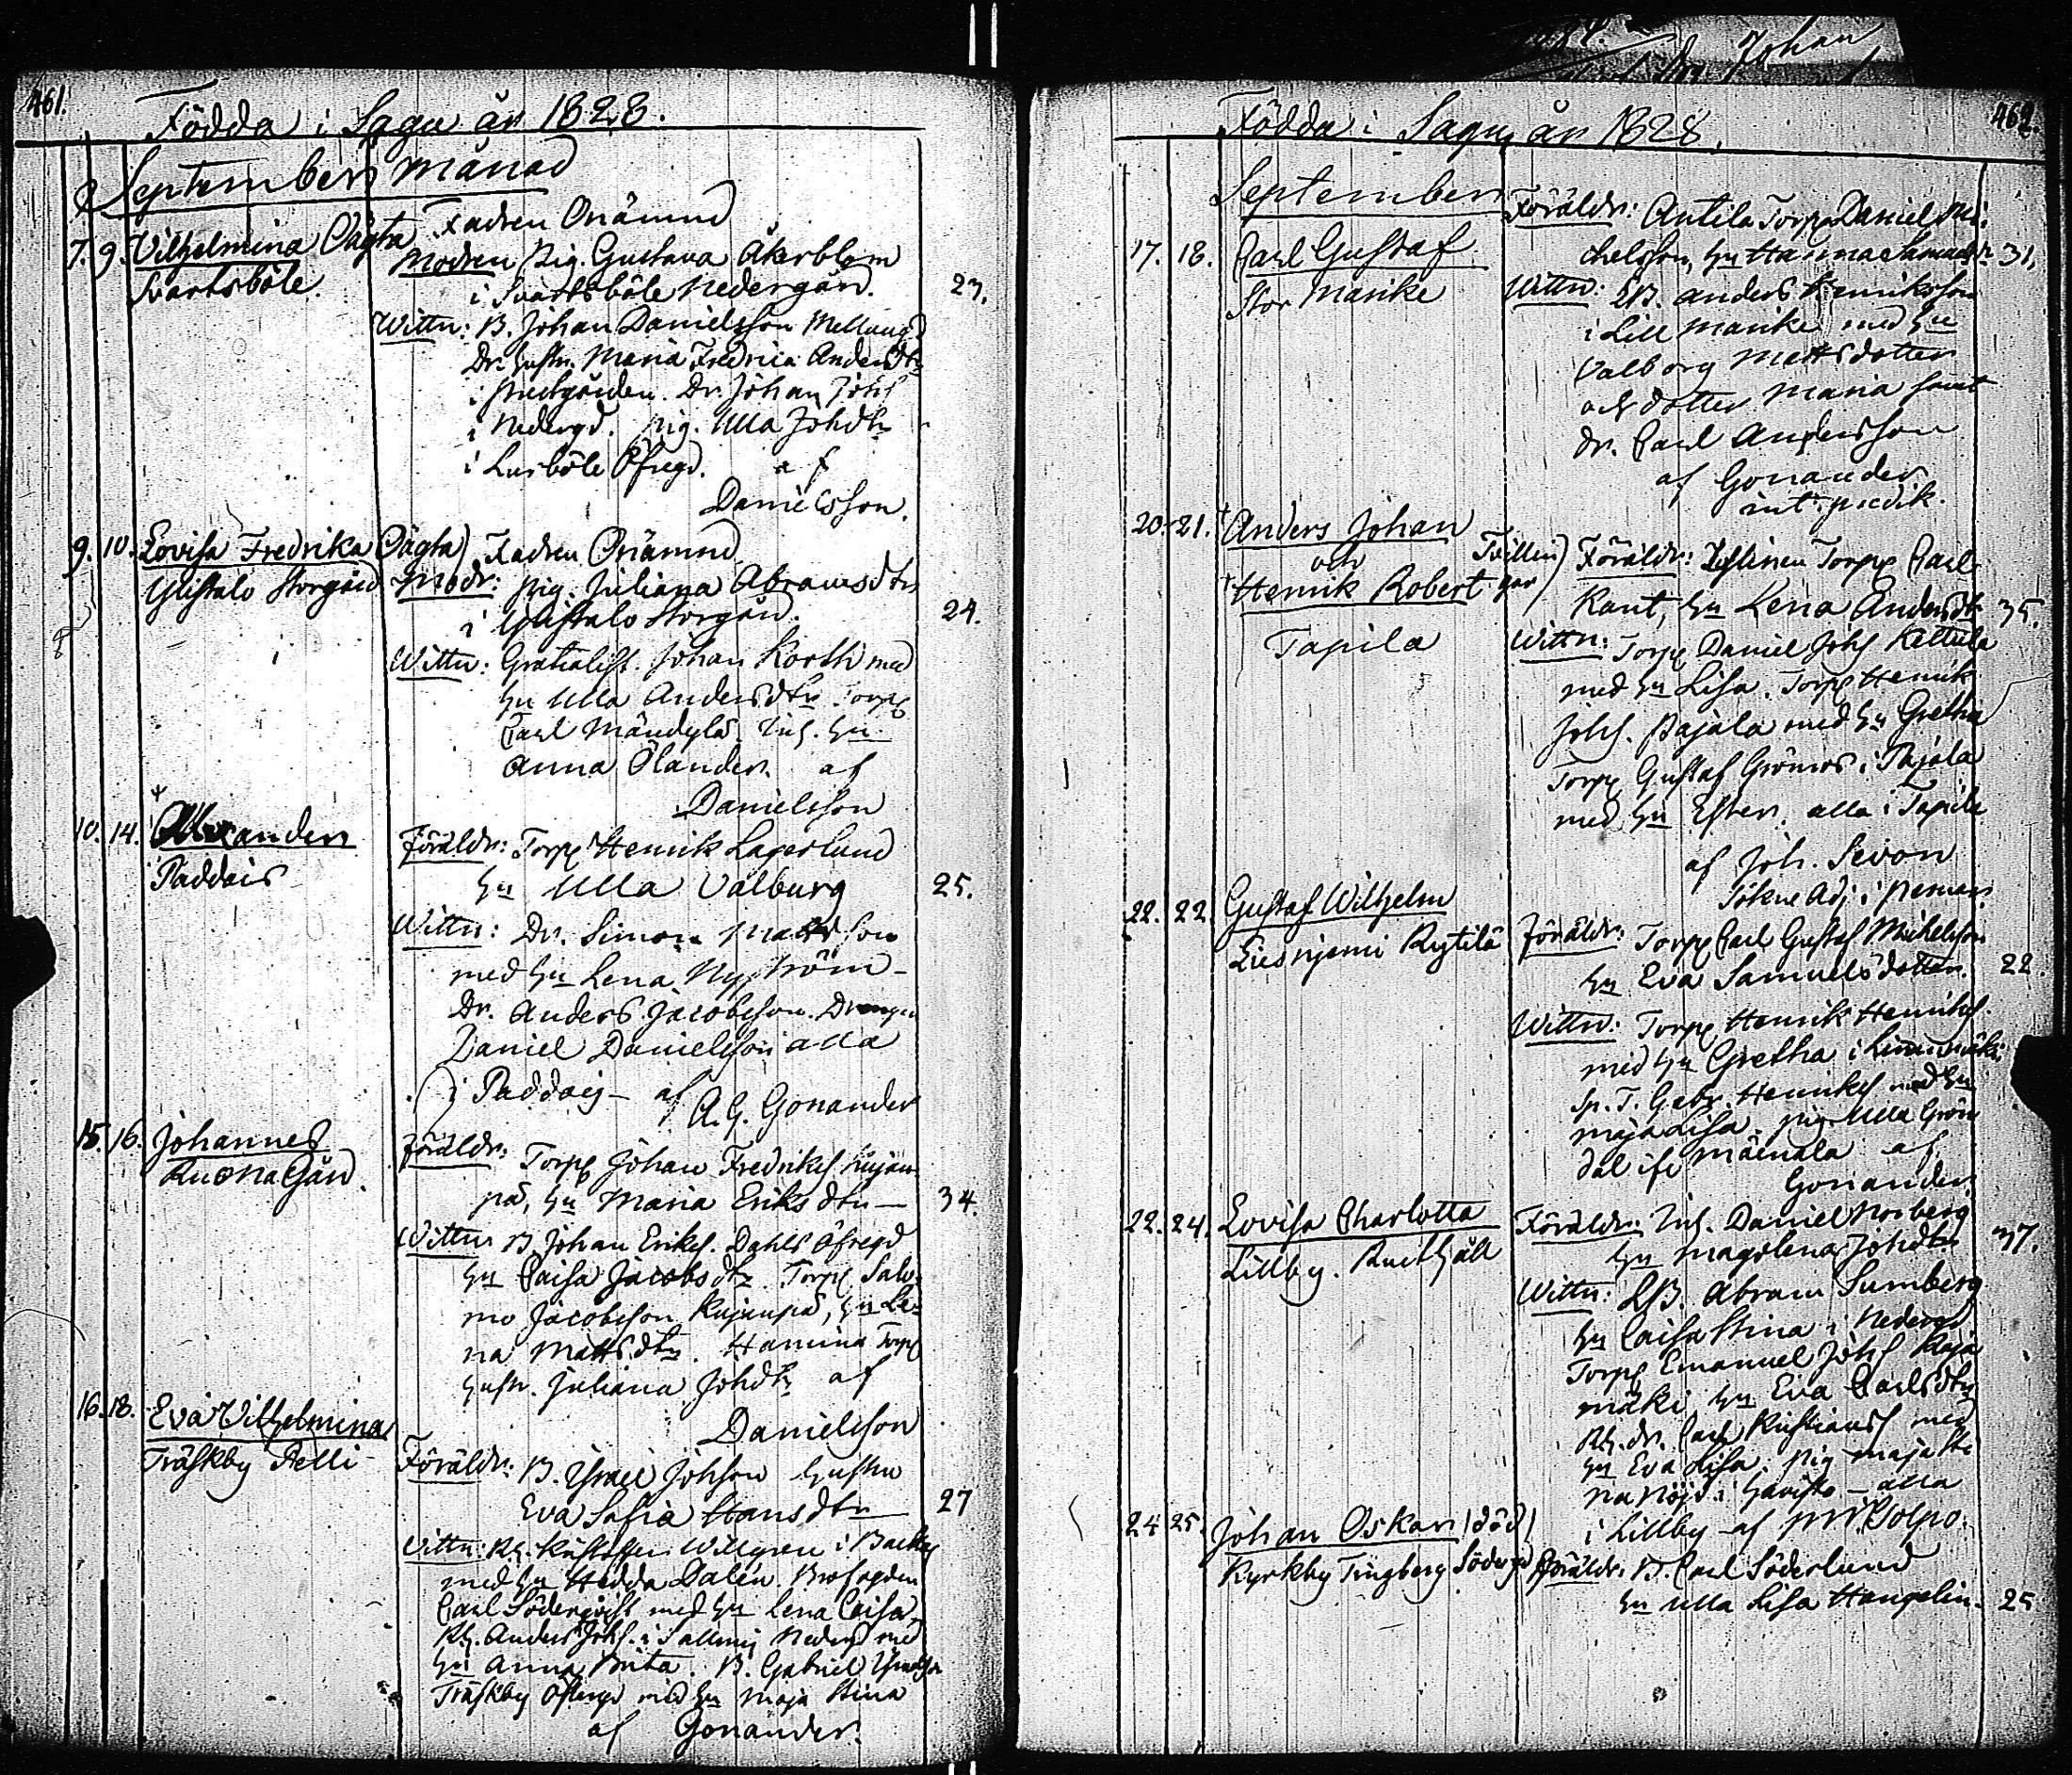 461.
Födda i Sagu år 1828.
September månad
7. 9. Vilhelmina Oägta Fadren Onämnd
Svartsböle.
Modren Pig. Gustava Åkerblom
i Svartsböle Nedergård. 23.
Wittn: B. Johan Danielsson Mellangd
Dr. hustr. Maria Fredrica Andersdtr
i Dr. Johan Johs
i Nedergd. pig. Ulla Johdtr
i Lusböle Öfregd. af
Danielsson.
9. 10. Lovisa Fredrika Oägta) Fadren Onämnd
Storgård Modr: Pig. Juliana Abramsdtr
i Storgård. 24.
Wittn: Gratialist. Johan Korth med
hu Ulla Andersdtr Torp
Carl Inh. hu
Anna Ölander. af
Danielsson
10. 14. Alexander
Paddais
Föräldr: Torp Henrik Lagerlund
hu Ulla Valburg 25.
Wittn: Dr. Simon Mattsson
med hu Lena Nyström -
Dr. Anders Jacobsson. Drengen
Daniel Danielsson alla
i Paddais - af A. G. Gonander
15. 16. Johannes
Ruona Gård.
Föräldr: Torp Johan Fredriks Kujan
pä, hu Maria Eriksdtr — 34.
Wittn: B Johan Eriks. Dahls Öfregd
hu Caisa Jacobsdtr. Torp. Salo-
mo Jacobsson Kujanpä, hu Le-
na Mattsdtr. Hamina Torp
hustr. Juliana Johdtr af
Danielsson
16. 18. Eva Vilhelmina
Träskby Pelli
Föräldr: B. Israel Johsson hustru
Eva Sofia Hansdtr — 27
Wittn: Rh. Willgren i Backas
med hu Hedda Dalén.
Carl med hu Lena Caisa
Rh. Anders Johs. i Sallmis Nedergd med
hu Anna Brita. B. Gabriel
Träskby Öfregd med hu Maja Stina
af Gonander.
462.
Födda i Sagu år 1828.
September
17. 18. Carl Gustaf
Stor Manike
Föräldr: Antila Torp Daniel Mi-
chelsson, hu Hanna 31,
Wittn: LB. Anders Henriksson
i Lill Manike med hu
Valborg Mattsdotter
och dotter Maria samt
dr. Carl Andersson
af Gonander
int: predik.
20. 21. Anders Johan
och Tvillin
Henrik Robert gar)
Tapila
Föräldr: Torp Carl
Kant, hu Lena Andersdtr 35.
Wittn: Torp Daniel Johs Kettula
med hu Lisa. Torp Henrik
Johs. Pajala med hu Gretha
Torp Gustaf Grönros i Pajala
med hu Ester. alla i Tapila
af Joh. Sevon
Sökne Adj. i Pemar.
22. 22. Gustaf Wilhelm
Liesnjemi Rytilä
Föräldr: Torp Carl Gustaf Michelsson
hu Eva Samuelsdotter. 22.
Wittn: Torp Henrik Henriks.
med hu Gretha i
Sp. T. Gabr. Henriks med hu
Maja Lisa. pig Ulla Grön
dal ifr Mäenala af
Gonander
22. 24. Lovisa Charlotta
Lillby.
Föräldr: Inh. Daniel Norberg
hu Magdlena Johdtr 37.
Wittn: LB. Abram Sumberg
hu Caisa Stina i Nedergd
Torp Emanuel Johs Raja
mäki hu Eva Carlsdtr
Rh. dr. Carl Kristians med
hu Eva Lisa. pig Maja Sti
na Nöjd i - alla
i Lillby af
24 25. Johan Oskar (död)
Kyrkby Tingberg Södergd
Föräldr: B. Carl Söderlund
hu Ulla Lisa Hangelin. 25